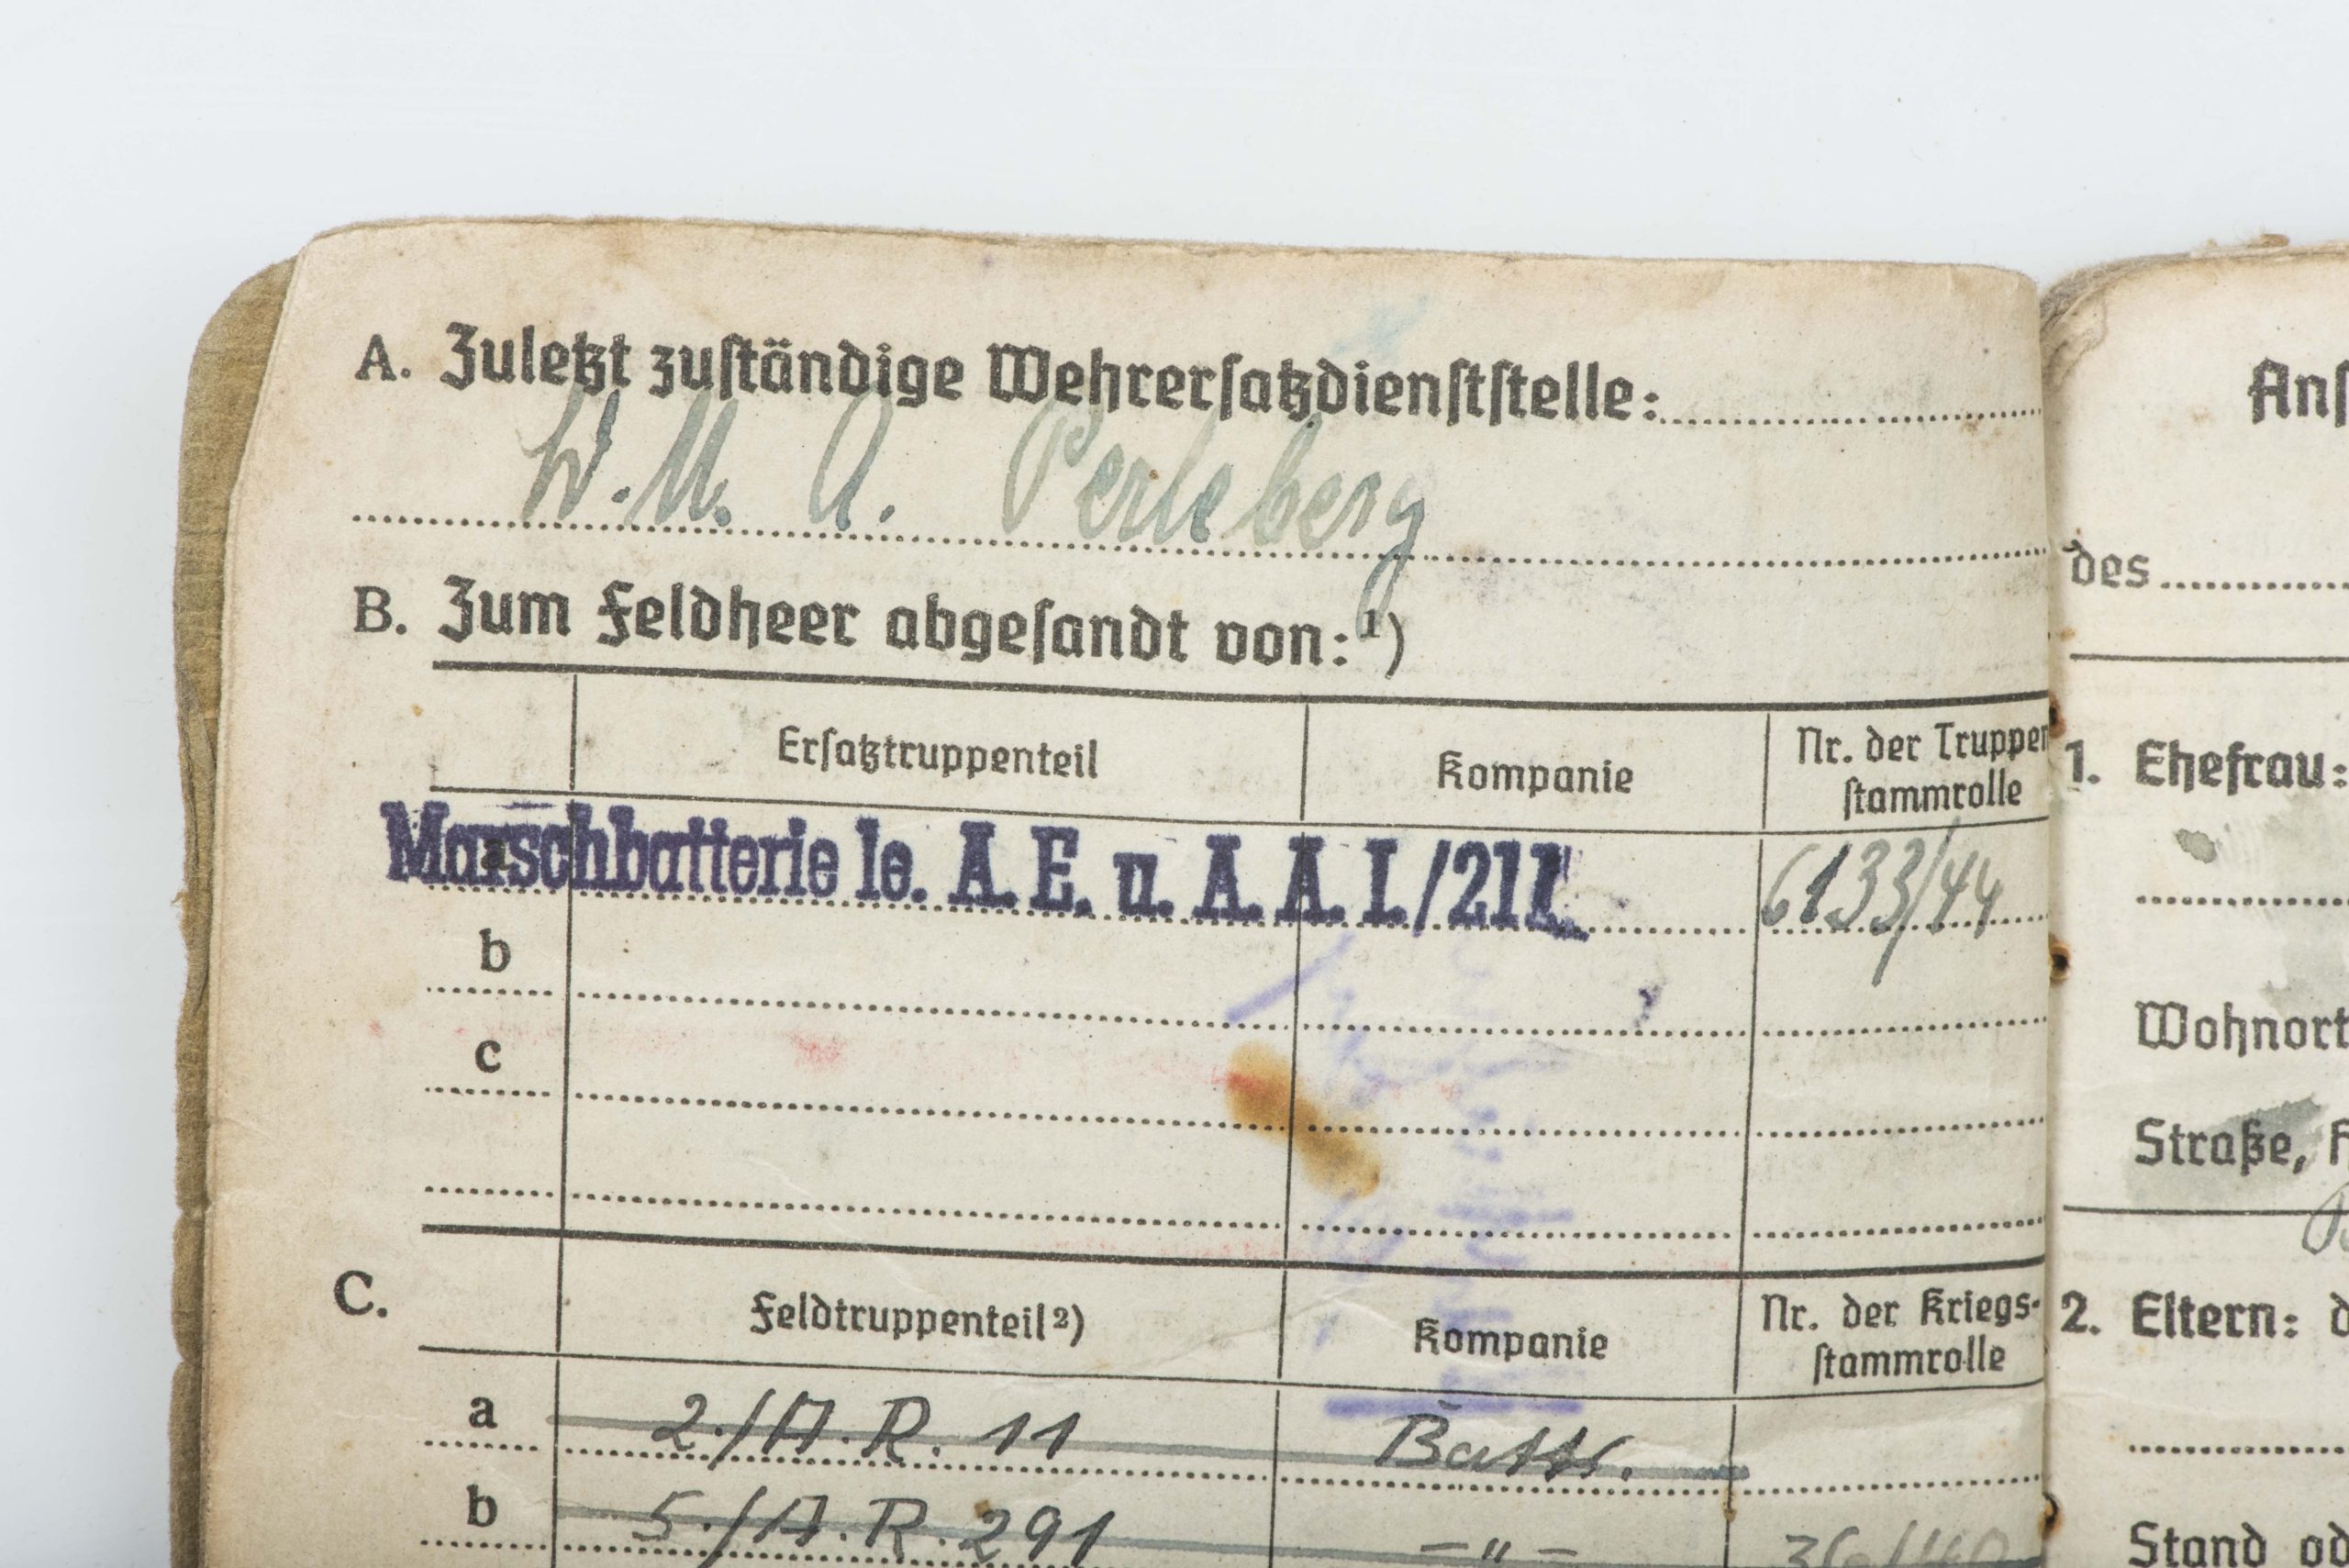 A. Zuletzt zuständige Wehrersatzdienststelle:
W. M. A. Perleberg
B. Zum Feldheer abgesandt von: ¹)
Ersatztruppenteil Kompanie Nr. der Truppen
stammrolle
a Marschbatterie le. A. E. u. A. A. I./211 6133/44
b
c
C. Feldtruppenteil ²) Kompanie Nr. der Kriegs-
stammrolle
a 2./A.R. 11 Battr.
b 5./A.R. 291 -"-
des
1. Ehefrau:
Wohnort
Straße,
2. Eltern:
Stand